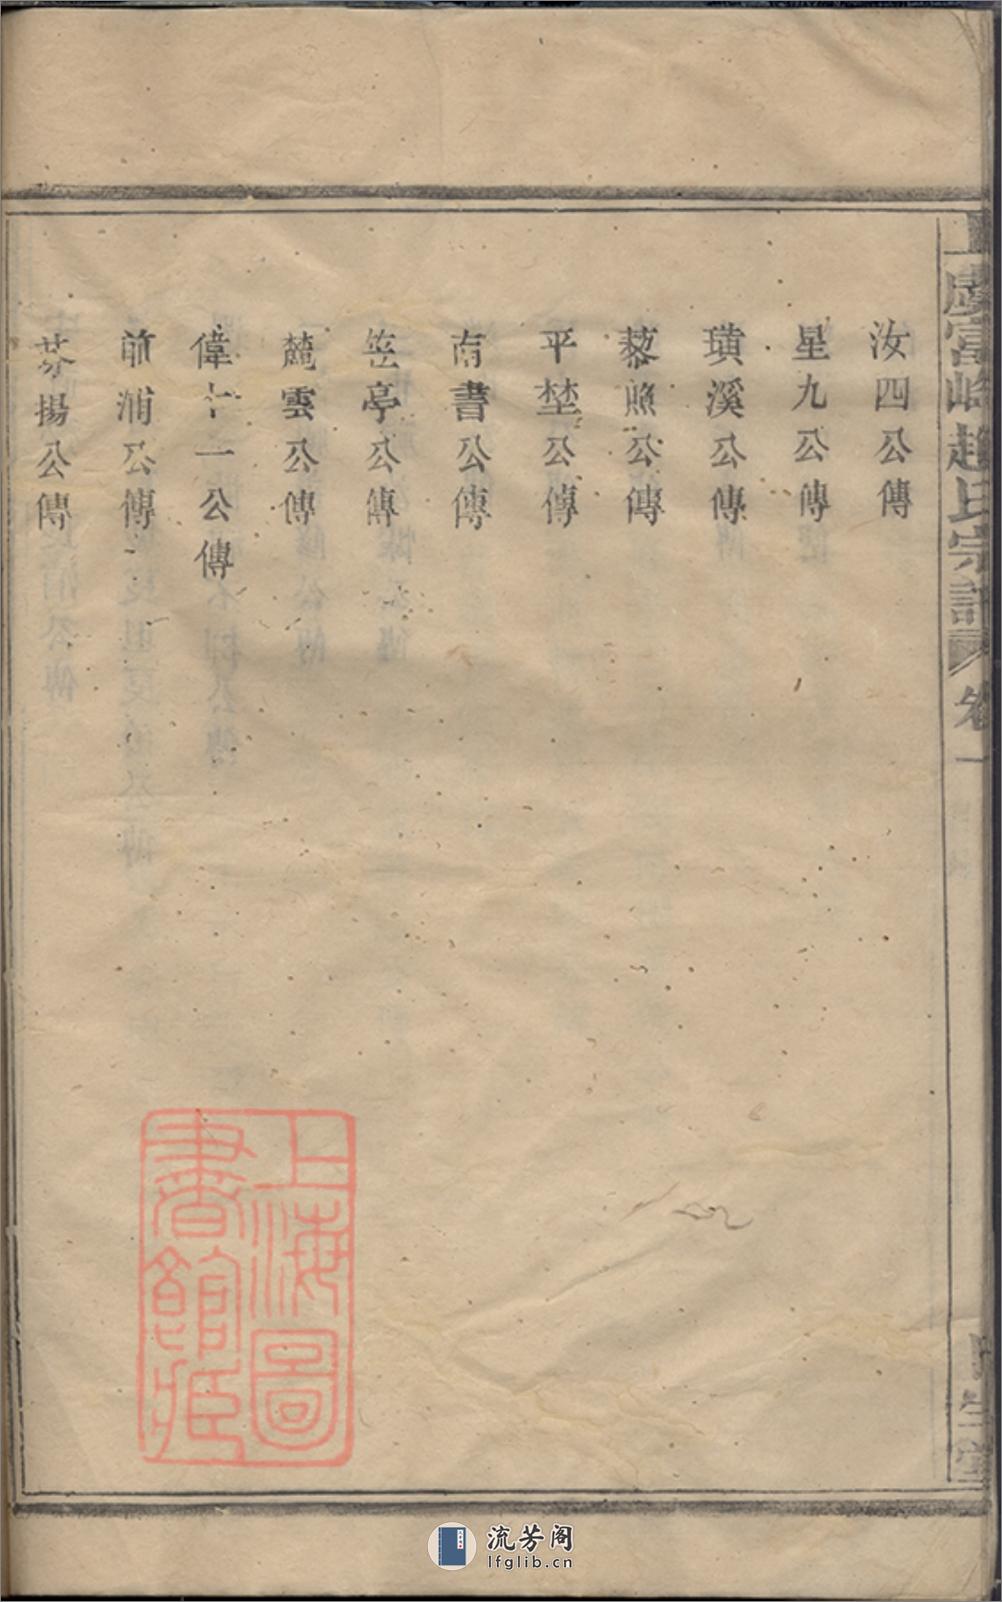 虞富峰趙氏宗譜
卷一
汝四公傳
星九公傳
璜溪公傳
藜照公傳
平埜公傳
南書公傳
笠亭公傳
麓雲公傳
偉十一公傳
前浦公傳
芬揚公傳
上海圖
書館藏
流芳阁
lfglib.cn